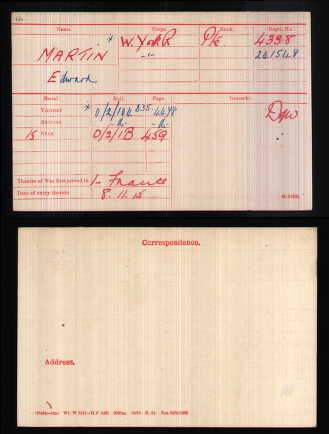 Name. Corps. Rank. Regtl. No.
MARTIN * W. York R Pte. 4398
Edward -"- 241549
Medal. Roll. Page. Remarks.
Victory * 0/2/104 B35. 4498
British -do- -do-
15 Star 0/2/1B 459
Theatre of War first served in 1- France
Date of entry therein 8.11.15
Correspondence.
Address.